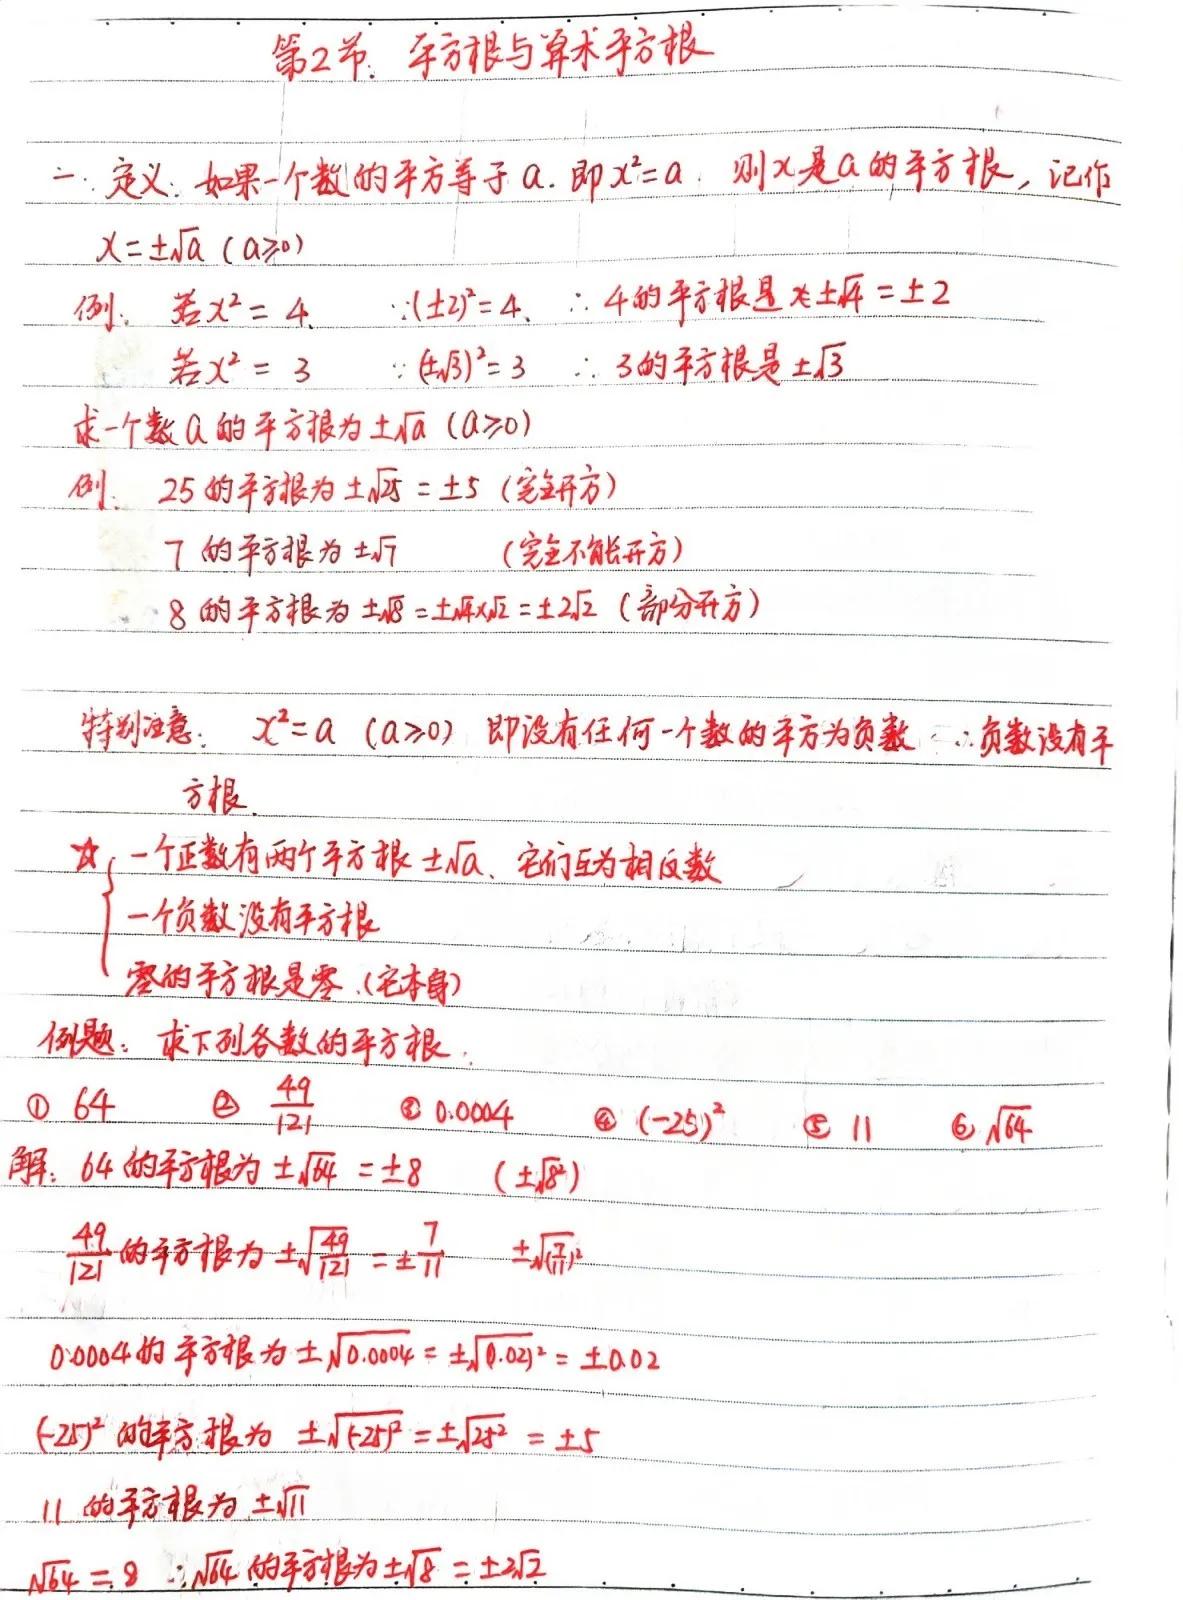 第2节. 平方根与算术平方根
一. 定义: 如果一个数的平方等于a. 即x²=a. 则x是a的平方根, 记作
x=±√a (a≥0)
例. 若x²=4. ∵(±2)²=4. ∴4的平方根是x=±√4=±2
若x²=3 ∵(±√3)²=3 ∴3的平方根是±√3
求一个数a的平方根为±√a (a≥0)
例. 25的平方根为±√25=±5 (完全开方)
7的平方根为±√7 (完全不能开方)
8的平方根为±√8=±√4×√2=±2√2 (部分开方)
特别注意: x²=a (a≥0) 即没有任何一个数的平方为负数 ∴负数没有平
方根.
☆{一个正数有两个平方根±√a、它们互为相反数
一个负数没有平方根
零的平方根是零.(它本身)
例题: 求下列各数的平方根.
① 64 ② 49/121 ③ 0.0004 ④ (-25)² ⑤ 11 ⑥ √64
解: 64的平方根为±√64=±8 (±√8²)
49/121的平方根为±√(49/121)=±7/11 ±√(7/11)²
0.0004的平方根为±√0.0004=±√(0.02)²=±0.02
(-25)²的平方根为±√(-25)²=±√25²=±5
11的平方根为±√11
√64=8 ∴√64的平方根为±√8=±2√2